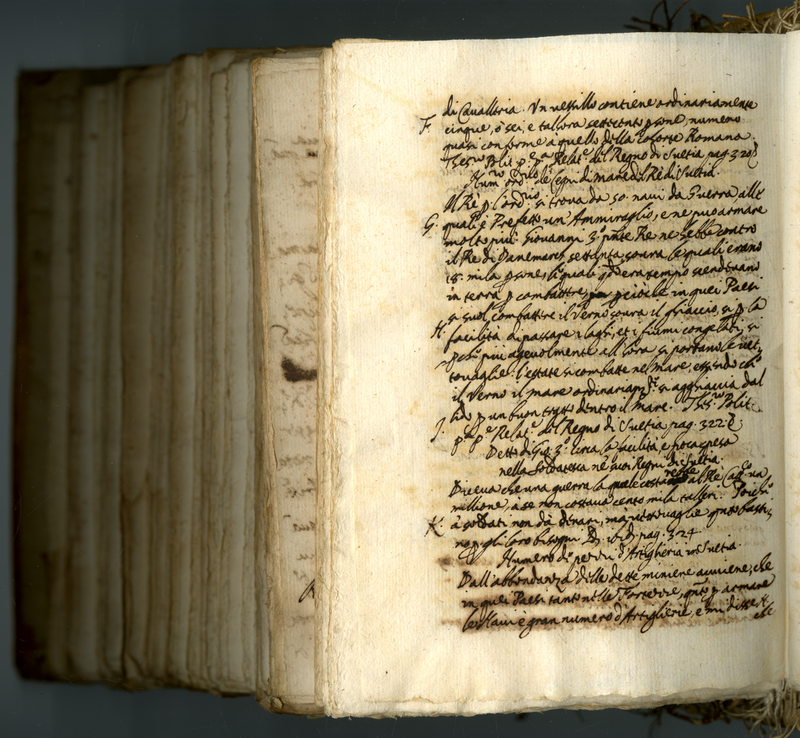 di Cavallria. Vn vessillo contiene ordinariamente
F. cinque, ò sei, e tal'ora settecento psone, numero
quasi conforme a quello della Cohorte Romana.
Thes. Polit. p. p.a Relat.e del Regno di Suetia pag. 320
Num.o ord.rio de legni di mare del Rè di Suetia.
Il Rè p l'ord.rio si troua da 50. naui da Guerra alle
G. quali è Prefetto un'Ammiraglio, e ne puo armare
molto più. Giouanni 3.o pnte Re ne hebbe contro
il Re di Danemarch settanta, soura le quali erano
18. mila psone, le quali q.do era tempo scendeuano
in terra p combattere, p cioche in quei Paesi
si suol combattere il Verno soura il ghiaccio, si p la
H. facilità di passare i laghi, et i fiumi congelati, si
p che più ageuolmente all'hora si portano le uet,
touaglie. l'estate si combatte nel mare, essendo ch'
il Verno il mare ordinariam.te si agghiaccia dal
lido p un buon tratto dentro il mare. Thes. Polit.
J. p.a p.e Relat.e del Regno di Suetia pag. 322.
Detto di Gio: 3.o circa la facilità, e poca spesa
nella Soldatesca ne suoi Regni di Suetia.
Diceua che una guerra la quale costasse al Rè Cag.co un
millione, à se non costaua cento mila talleri. Poich'
K. à soldati non dà denari, mà uettouaglie quanto basti,
no p gli loro bisogni. D. ibid. pag. 324
Numero di pezzi d'Artigheria in Suetia.
Dall'abbondanza delle dette miniere auuiene, che
in quei Paesi tanto nelle Fortezze, quanto p armare
le Naui è gran numero d'Artiglierie, e mi disse il